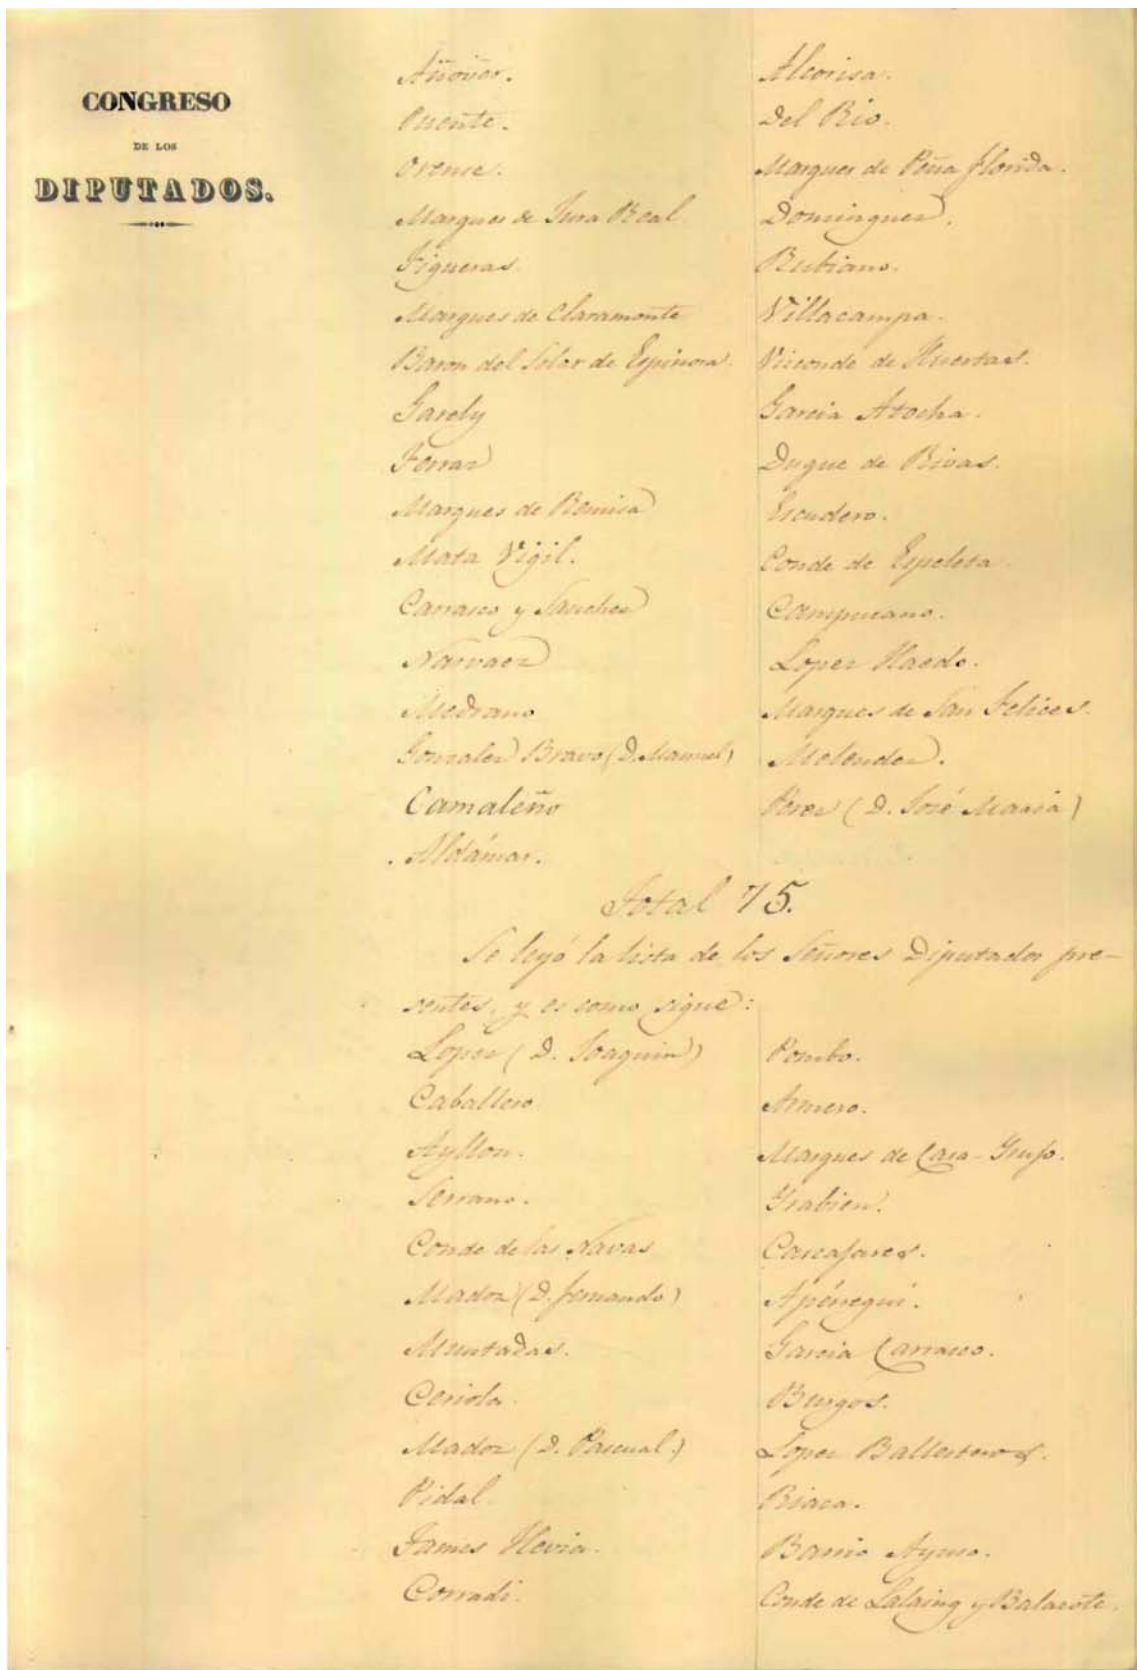 CONGRESO
DE LOS
DIPUTADOS.
Añoñer.
Puente.
Orense.
Marques de Jura Real
Figueras.
Marques de Claramonte
Baron del Solar de Espinosa.
Garely
Ferraz
Marques de Remisa
Mata Vigil.
Carrasco y Sanchez
Narvaez
Medrano
Gonzalez Bravo (D. Manuel)
Camaleño
Aldámar.
Alcorisa.
Del Rio.
Marques de Peña florida.
Dominguez.
Rubiano.
Villacampa.
Vizconde de Huertas.
Garcia Atocha.
Duque de Rivas.
Escudero.
Conde de Ezpeleta.
Campuzano.
Lopez Haedo.
Marques de San Felices.
Melendez.
Perez (D. José Maria)
Total 75.
Se leyó la lista de los Señores Diputados pre-
sentes, y es como sigue:
Lopez (D. Joaquin)
Caballero
Ayllon.
Serrano.
Conde de las Navas
Madoz (D. fernando)
Muntadas.
Ceriola.
Madoz (D. Pascual.)
Pidal.
James Hevia.
Corradi.
Pombo.
Armero.
Marques de Casa-Yrujo.
Yrabien.
Carcajares.
Apérregui.
Garcia Carrasco.
Burgos.
Lopez Ballesteros.
Riaza.
Barrio Ayuso.
Conde de Lalaing y Balazote.